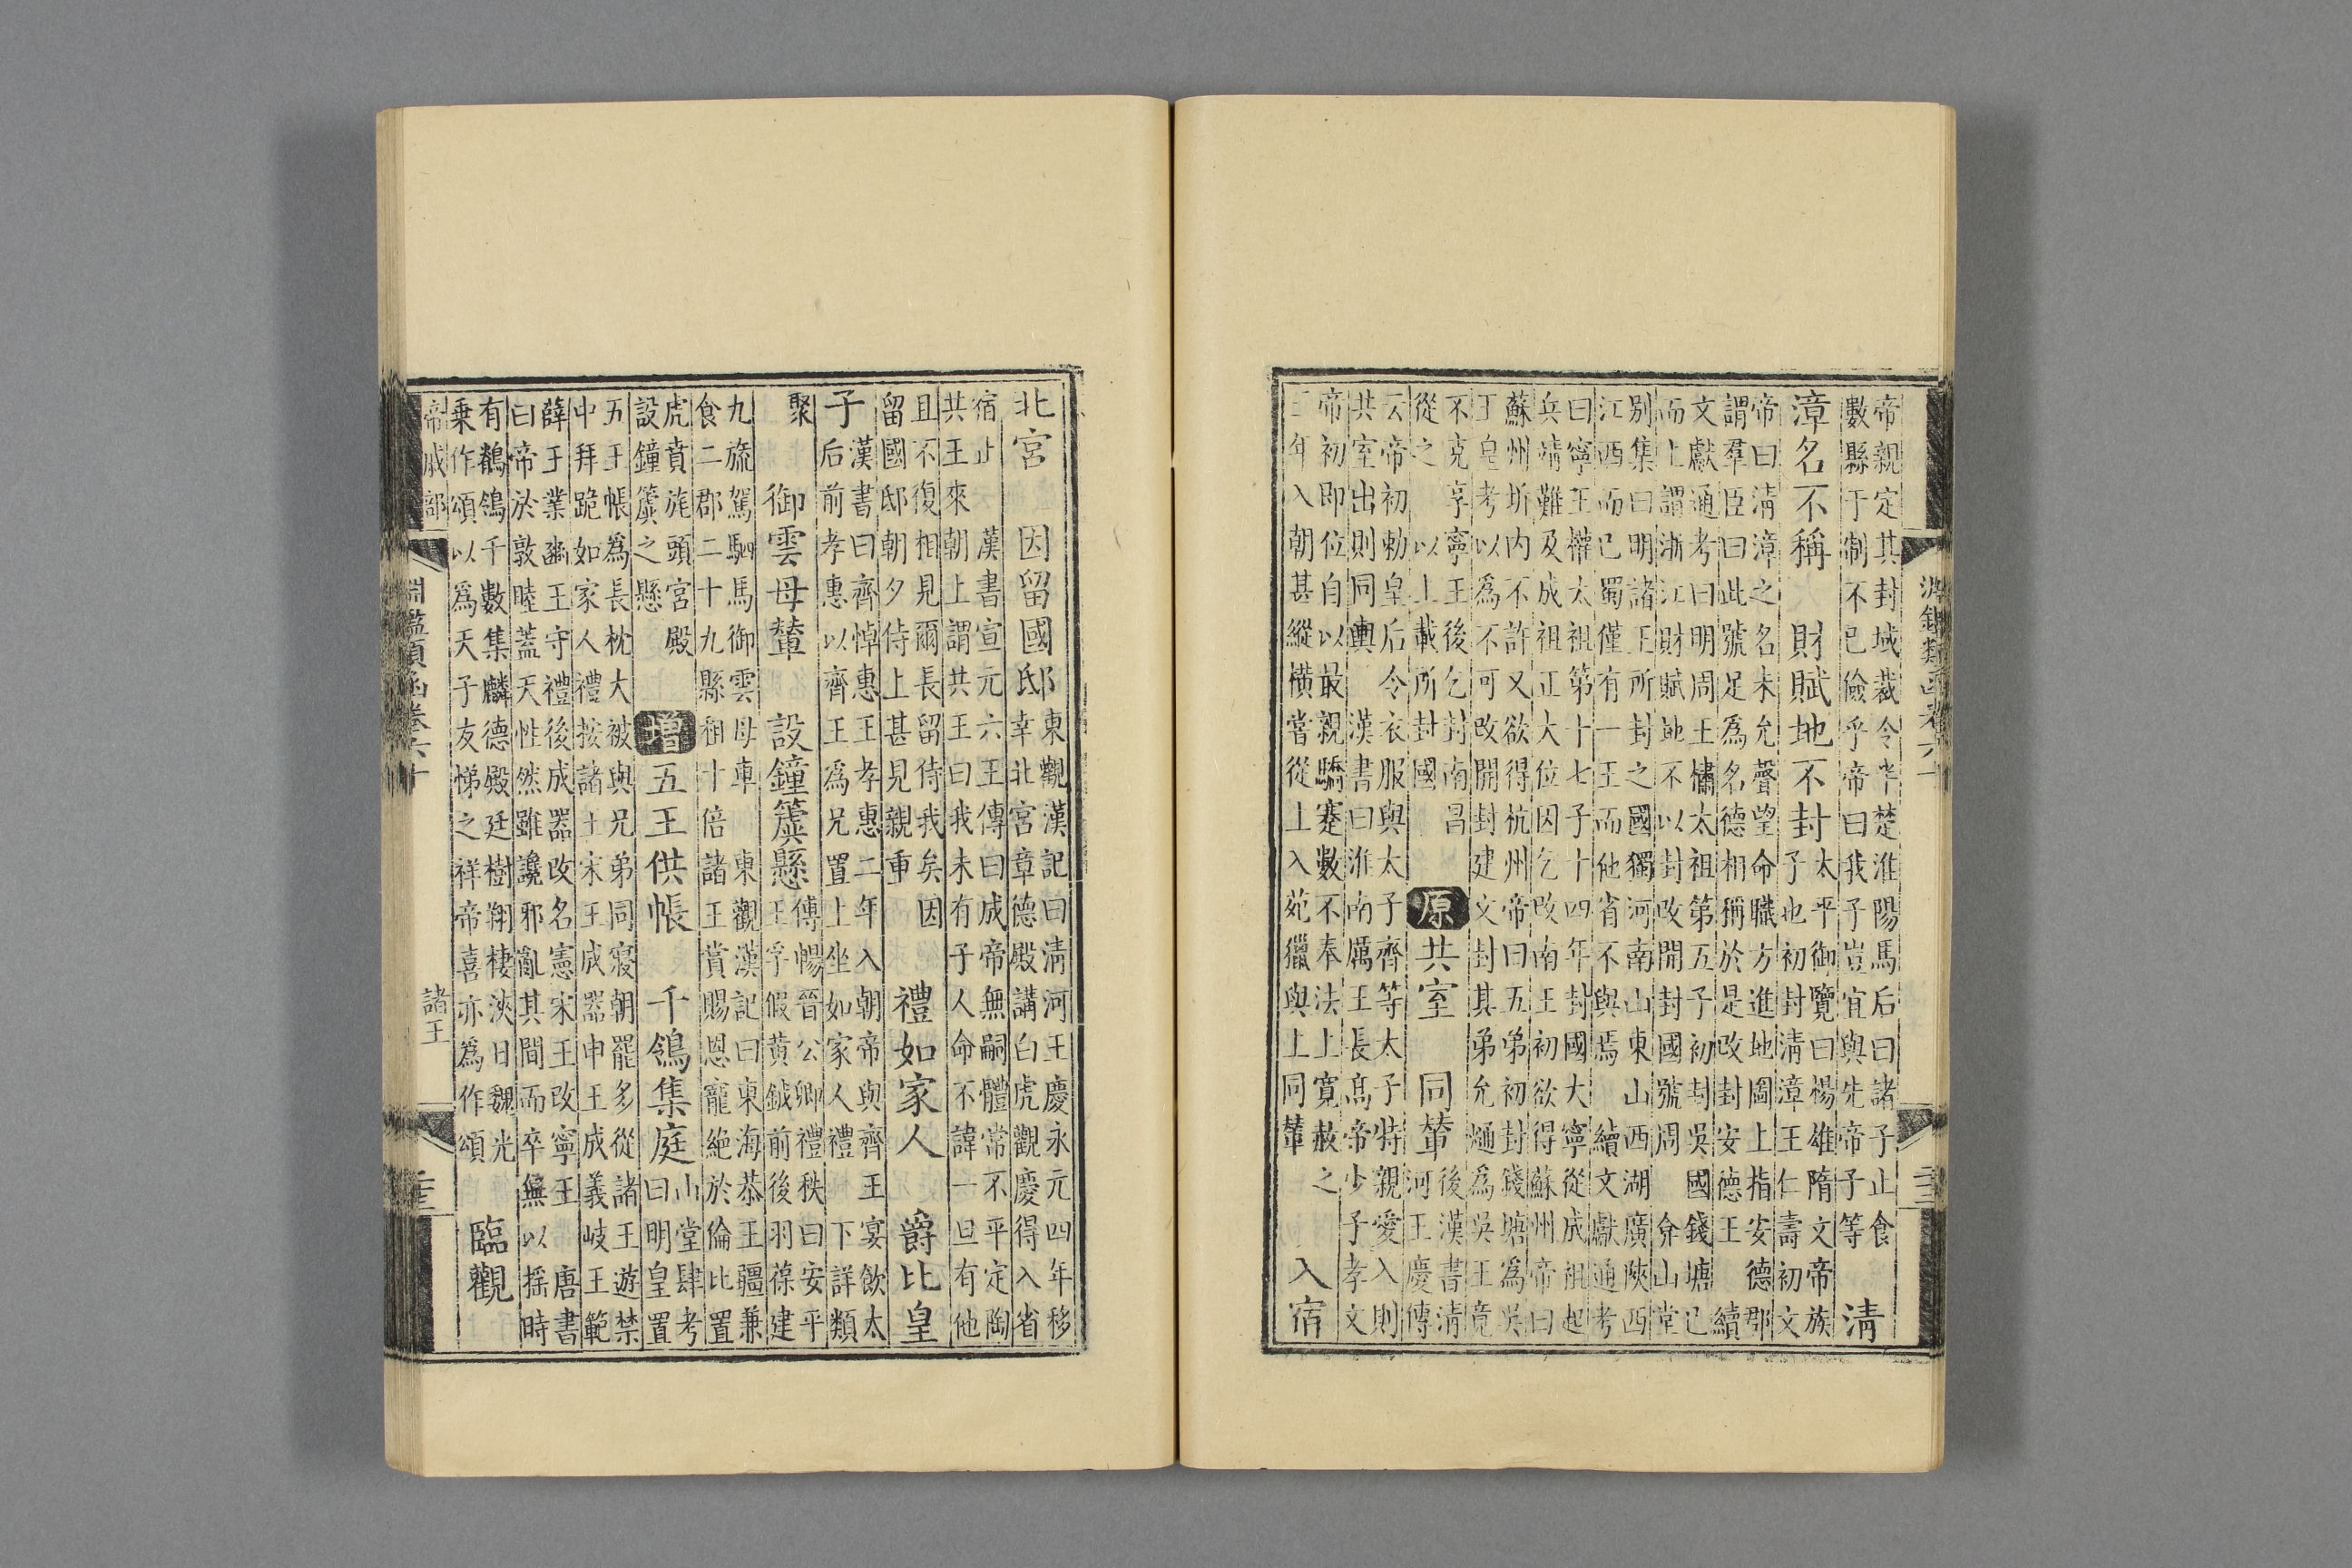 帝親定其封域裁令半楚淮陽馬后曰諸子止食
數縣于制不已儉乎帝曰我子豈宜與先帝子等
清
漳名不稱
太平御覽曰楊雄隋文帝族
子也初封清漳王仁壽初文
帝曰清漳之名未允聲望命職方進地圖上指安德郡
謂羣臣曰此號足爲名德相稱於是改封安德王
財賦地不封
續
文獻通考曰明周王橚太祖第五子初封吳國錢塘已
而上謂浙江財賦地不以封改開封國號周
弇山堂
别集曰明諸王所封之國獨河南山東山西湖廣陝西
江西而已蜀僅有一王而他省不與焉
續文獻通考
曰寧王權太祖第十七子十四年封國大寧從成祖起
兵靖難及成祖正大位因乞改南王初欲得蘇州帝曰
蘇州圻内不許又欲得杭州帝曰五弟初封錢塘爲吳
王皇考以爲不可改開封建文封其弟允熥爲吳王竟
不克享寧王後乞封南昌
從之
以上載所封國
原
共室
同輦
後漢書清
河王慶傳
云帝初勅皇后令衣服與太子齊等太子特親愛入則
共室出則同輿
漢書曰淮南厲王長高帝少子孝文
帝初即位自以最親驕蹇數不奉法上寬赦之
三年入朝甚縱橫嘗從上入苑獵與上同輦
入宿
北宮
東觀漢記曰清河王慶永元四年移
幸北宮章德殿講白虎觀慶得入省
宿止
因留國邸
漢書宣元六王傳曰成帝無嗣體常不平定陶
共王來朝上謂共王曰我未有子人命不諱一旦有他
且不復相見爾長留侍我矣因
留國邸朝夕侍上甚見親重
禮如家人
爵比皇
子
漢書曰齊悼惠王孝惠二年入朝帝與齊王宴飲太
后前孝惠以齊王爲兄置上坐如家人禮
下詳類
聚
御雲母輦
設鐘簴懸
傅暢晉公卿禮秩曰安平
王孚假黄鉞前後羽葆建
九旒駕駟馬御雲母車
東觀漢記曰東海恭王疆兼
食二郡二十九縣租十倍諸王賞賜恩寵絶於倫比置
虎賁旄頭宮殿
設鐘簴之懸
增
五王供帳
千鴒集庭
山堂肆考
曰明皇置
五王帳爲長枕大被與兄弟同寢朝罷多從諸王遊禁
中拜跪如家人禮按諸王宋王成器申王成義岐王範
薛王業豳王守禮後成器改名憲宋王改寧王
唐書
曰帝於敦睦蓋天性然雖讒邪亂其間而卒無以揺時
有鶺鴒千數集麟德殿廷樹翔棲浹日魏光
乗作頌以爲天子友悌之祥帝喜亦爲作頌
臨觀
帝戚部
淵鑑類函卷六十
諸王